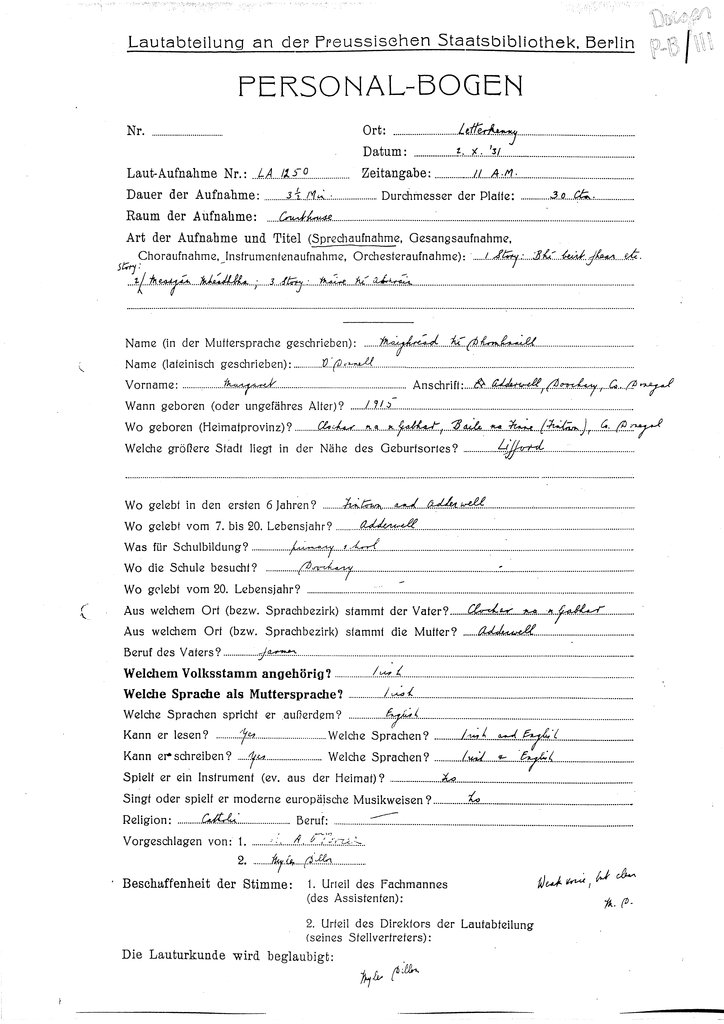 Doegen
P-B/III
Lautabteilung an der Preussischen Staatsbibliothek, Berlin
PERSONAL-BOGEN
Nr.
Ort: Letterkenny
Datum: 2. X. '31
Laut-Aufnahme Nr.: LA 1250 Zeitangabe: 11 A.M.
Dauer der Aufnahme: 3½ Min. Durchmesser der Platte: 30 Ctm.
Raum der Aufnahme: Courthouse
Art der Aufnahme und Titel (Sprechaufnahme, Gesangsaufnahme,
Choraufnahme, Instrumentenaufnahme, Orchesteraufnahme): 1 Story: Bhí beirt fhear etc.
Story:
2/ Meascán Mhéidhbhe; 3 Story: Máire Ní
Name (in der Muttersprache geschrieben): Maighréad Ní Dhomhnaill
Name (lateinisch geschrieben): O'Donnell
Vorname: Margaret Anschrift: Adderwell, Doochary, Co. Donegal
Wann geboren (oder ungefähres Alter)? 1915
Wo geboren (Heimatprovinz)? Clochar na nGabhar, Baile na Finne (Fintown), Co. Donegal
Welche größere Stadt liegt in der Nähe des Geburtsortes? Lifford
Wo gelebt in den ersten 6 Jahren? Fintown and Adderwell
Wo gelebt vom 7. bis 20. Lebensjahr? Adderwell
Was für Schulbildung? primary school
Wo die Schule besucht? Doochary
Wo gelebt vom 20. Lebensjahr? —
Aus welchem Ort (bezw. Sprachbezirk) stammt der Vater? Clochar na nGabhar
Aus welchem Ort (bzw. Sprachbezirk) stammt die Mutter? Adderwell
Beruf des Vaters? farmer
Welchem Volksstamm angehörig? Irish
Welche Sprache als Muttersprache? Irish
Welche Sprachen spricht er außerdem? English
Kann er lesen? Yes Welche Sprachen? Irish and English
Kann er schreiben? Yes Welche Sprachen? Irish & English
Spielt er ein Instrument (ev. aus der Heimat)? No
Singt oder spielt er moderne europäische Musikweisen? No
Religion: Catholic Beruf: —
Vorgeschlagen von: 1. A.
2. Myles Dillon
Beschaffenheit der Stimme: 1. Urteil des Fachmannes
(des Assistenten):
Weak voice, but clear
M. D.
2. Urteil des Direktors der Lautabteilung
(seines Stellvertreters):
Die Lauturkunde wird beglaubigt:
Myles Dillon